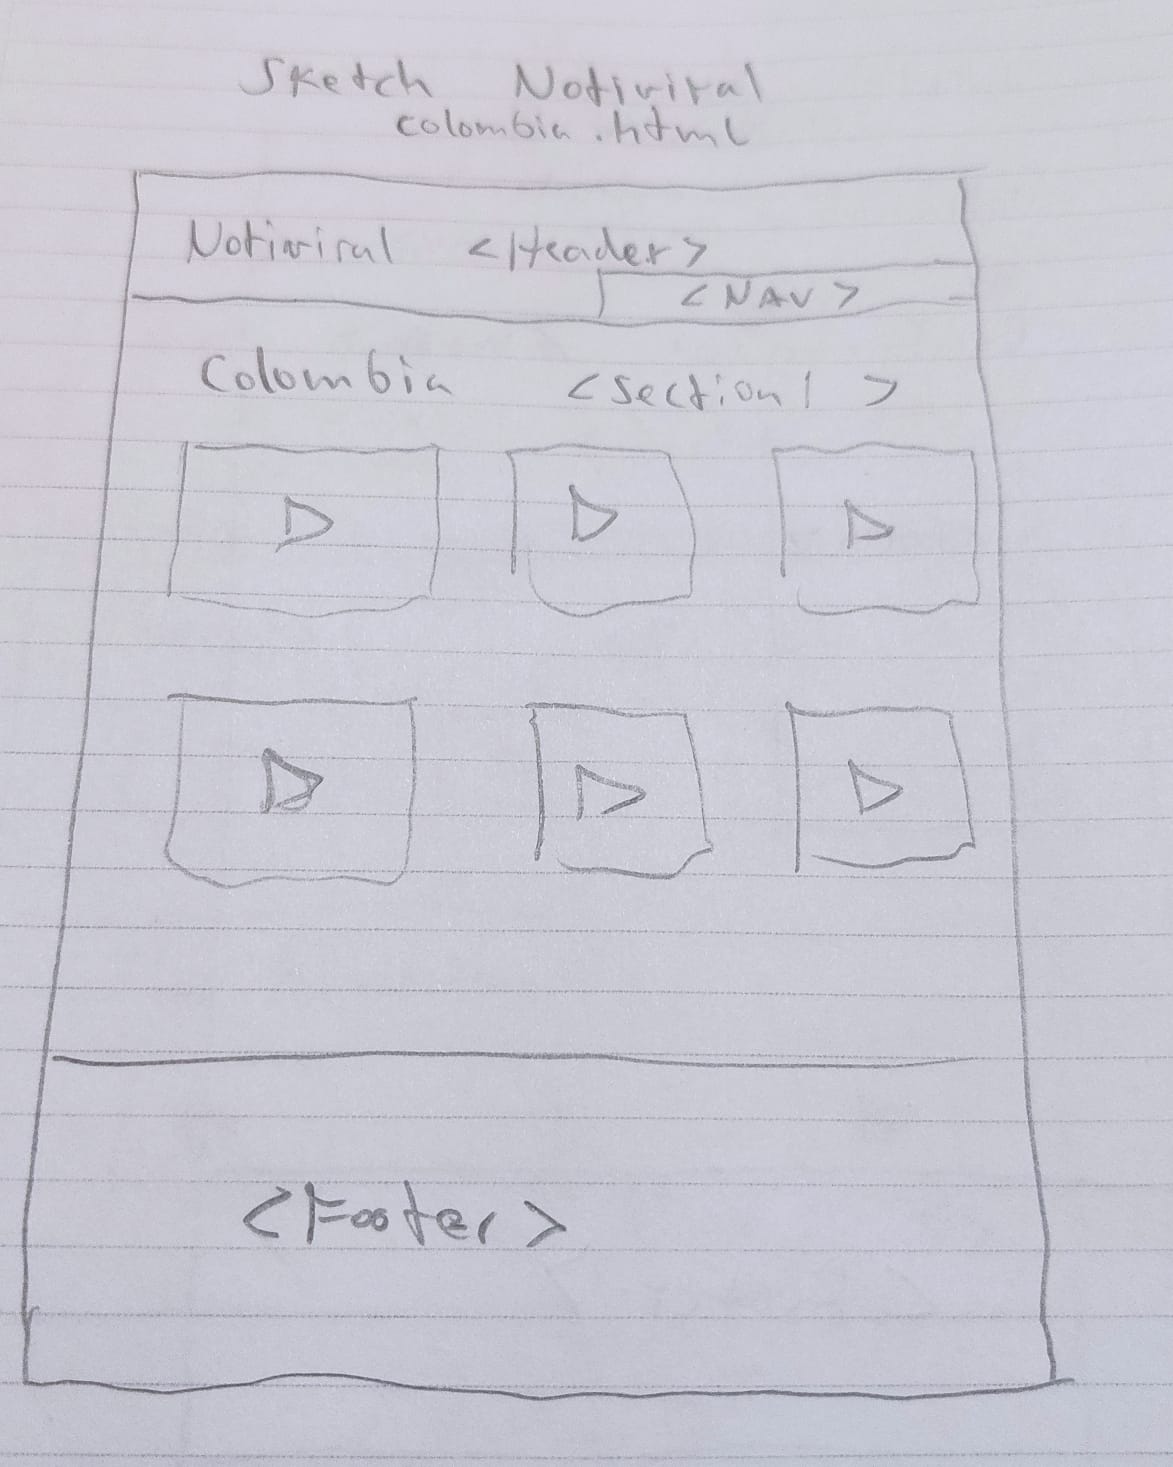 Sketch Notiviral
colombia.html
Notiviral <Header>
<NAV>
Colombia <section1>
<Footer>